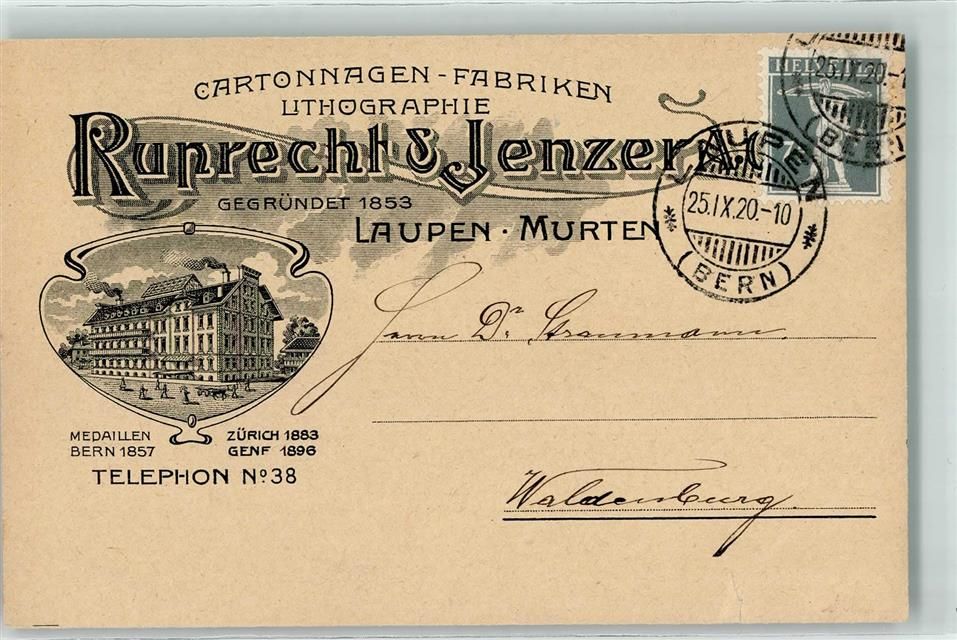 CARTONNAGEN-FABRIKEN
LITHOGRAPHIE
Ruprecht & Jenzer A.G.
GEGRÜNDET 1853
LAUPEN · MURTEN
HELVETIA
7
25.IX.20.-1
(BERN)
LAUPEN
25.IX.20.-10
(BERN)
Herrn Dr. Straumann
Waldenburg.
MEDAILLEN
BERN 1857
ZÜRICH 1883
GENF 1896
TELEPHON No. 38